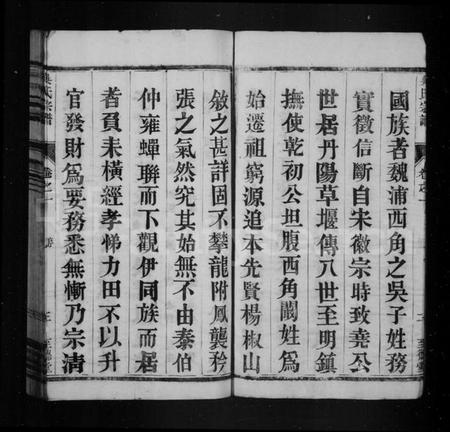 國族者魏浦西角之吳子姓務
實徵信斷自宋徽宗時致堯公
世居丹陽草堰傳八世至明鎮
撫使乾初公坦腹西角闞姓爲
始遷祖窮源追本先賢楊椒山
敘之甚詳固不攀龍附鳳襲矜
張之氣然究其始無不由泰伯
仲雍蟬聯而下觀伊同族而居
者負耒橫經孝悌力田不以升
官發財爲要務悉無慚乃宗清
吳氏宗譜
卷之一
至德堂